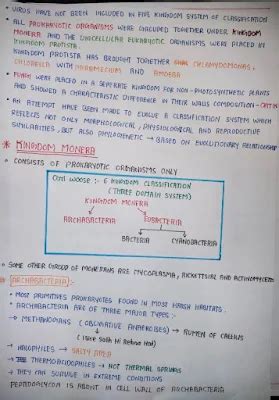 • VIRUS HAVE NOT BEEN INCLUDED IN FIVE KINGDOM SYSTEM OF CLASSIFICATION
• ALL PROKARYOTIC ORGANISMS WERE GROUPED TOGETHER UNDER KINGDOM
MONERA AND THE UNICELLULAR EUKARYOTIC ORGANISMS WERE PLACED IN
KINGDOM PROTISTA.
KINGDOM PROTISTA HAS BROUGHT TOGETHER CHLAMYDOMONAS,
CHLORELLA WITH PARAMECIUM AND AMOEBA
• FUNGI WERE PLACED IN A SEPARATE KINGDOM FOR NON-PHOTOSYNTHETIC PLANTS
AND SHOWED A CHARACTERISTIC DIFFERENCE IN THEIR WALLS COMPOSITION - CHITIN
• AN ATTEMPT HAVE BEEN MADE TO EVOLVE A CLASSIFICATION SYSTEM WHICH
REFLECTS NOT ONLY MORPHOLOGICAL, PHYSIOLOGICAL AND REPRODUCTIVE
SIMILARITIES, BUT ALSO PHYLOGENETIC → BASED ON EVOLUTIONARY RELATIONSHIP
* KINGDOM MONERA
• CONSISTS OF PROKARYOTIC ORGANISMS ONLY
Carl woose :- 6 KINGDOM CLASSIFICATION
(THREE DOMAIN SYSTEM)
KINGDOM MONERA
ARCHABACTERIA EUBACTERIA
BACTERIA CYANOBACTERIA
• SOME OTHER GROUP OF MONERANS ARE MYCOPLASMA, RICKETTSIAE AND ACTINOMYCETES
* ARCHABACTERIA :-
• MOST PRIMITIVES PROKARYOTES FOUND IN MOST HARSH HABITATS.
• ARCHABACTERIA ARE OF THREE MAJOR TYPES :-
→ METHANOGENS (OBLIGATIVE ANAEROBES) → RUMEN OF CATTLES
→ HALOPHILES → SALTY AREA
→ THERMOACIDOPHILES → HOT THERMAL SPRINGS
→ THEY CAN SURVIVE IN EXTREME CONDITIONS
PEPTIDOGLYCAN IS ABSENT IN CELL WALL OF ARCHABACTERIA